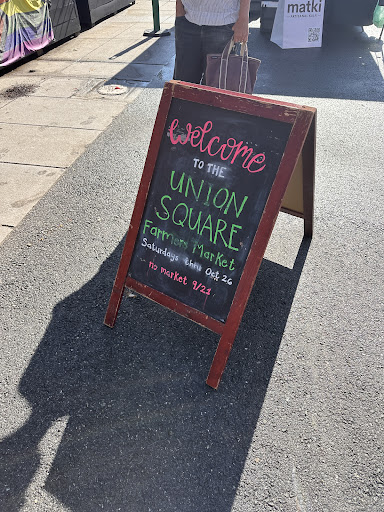 matki
welcome
TO THE
UNION
SQUARE
Farmers Market
Saturdays thru Oct 26
- no market 9/21 -